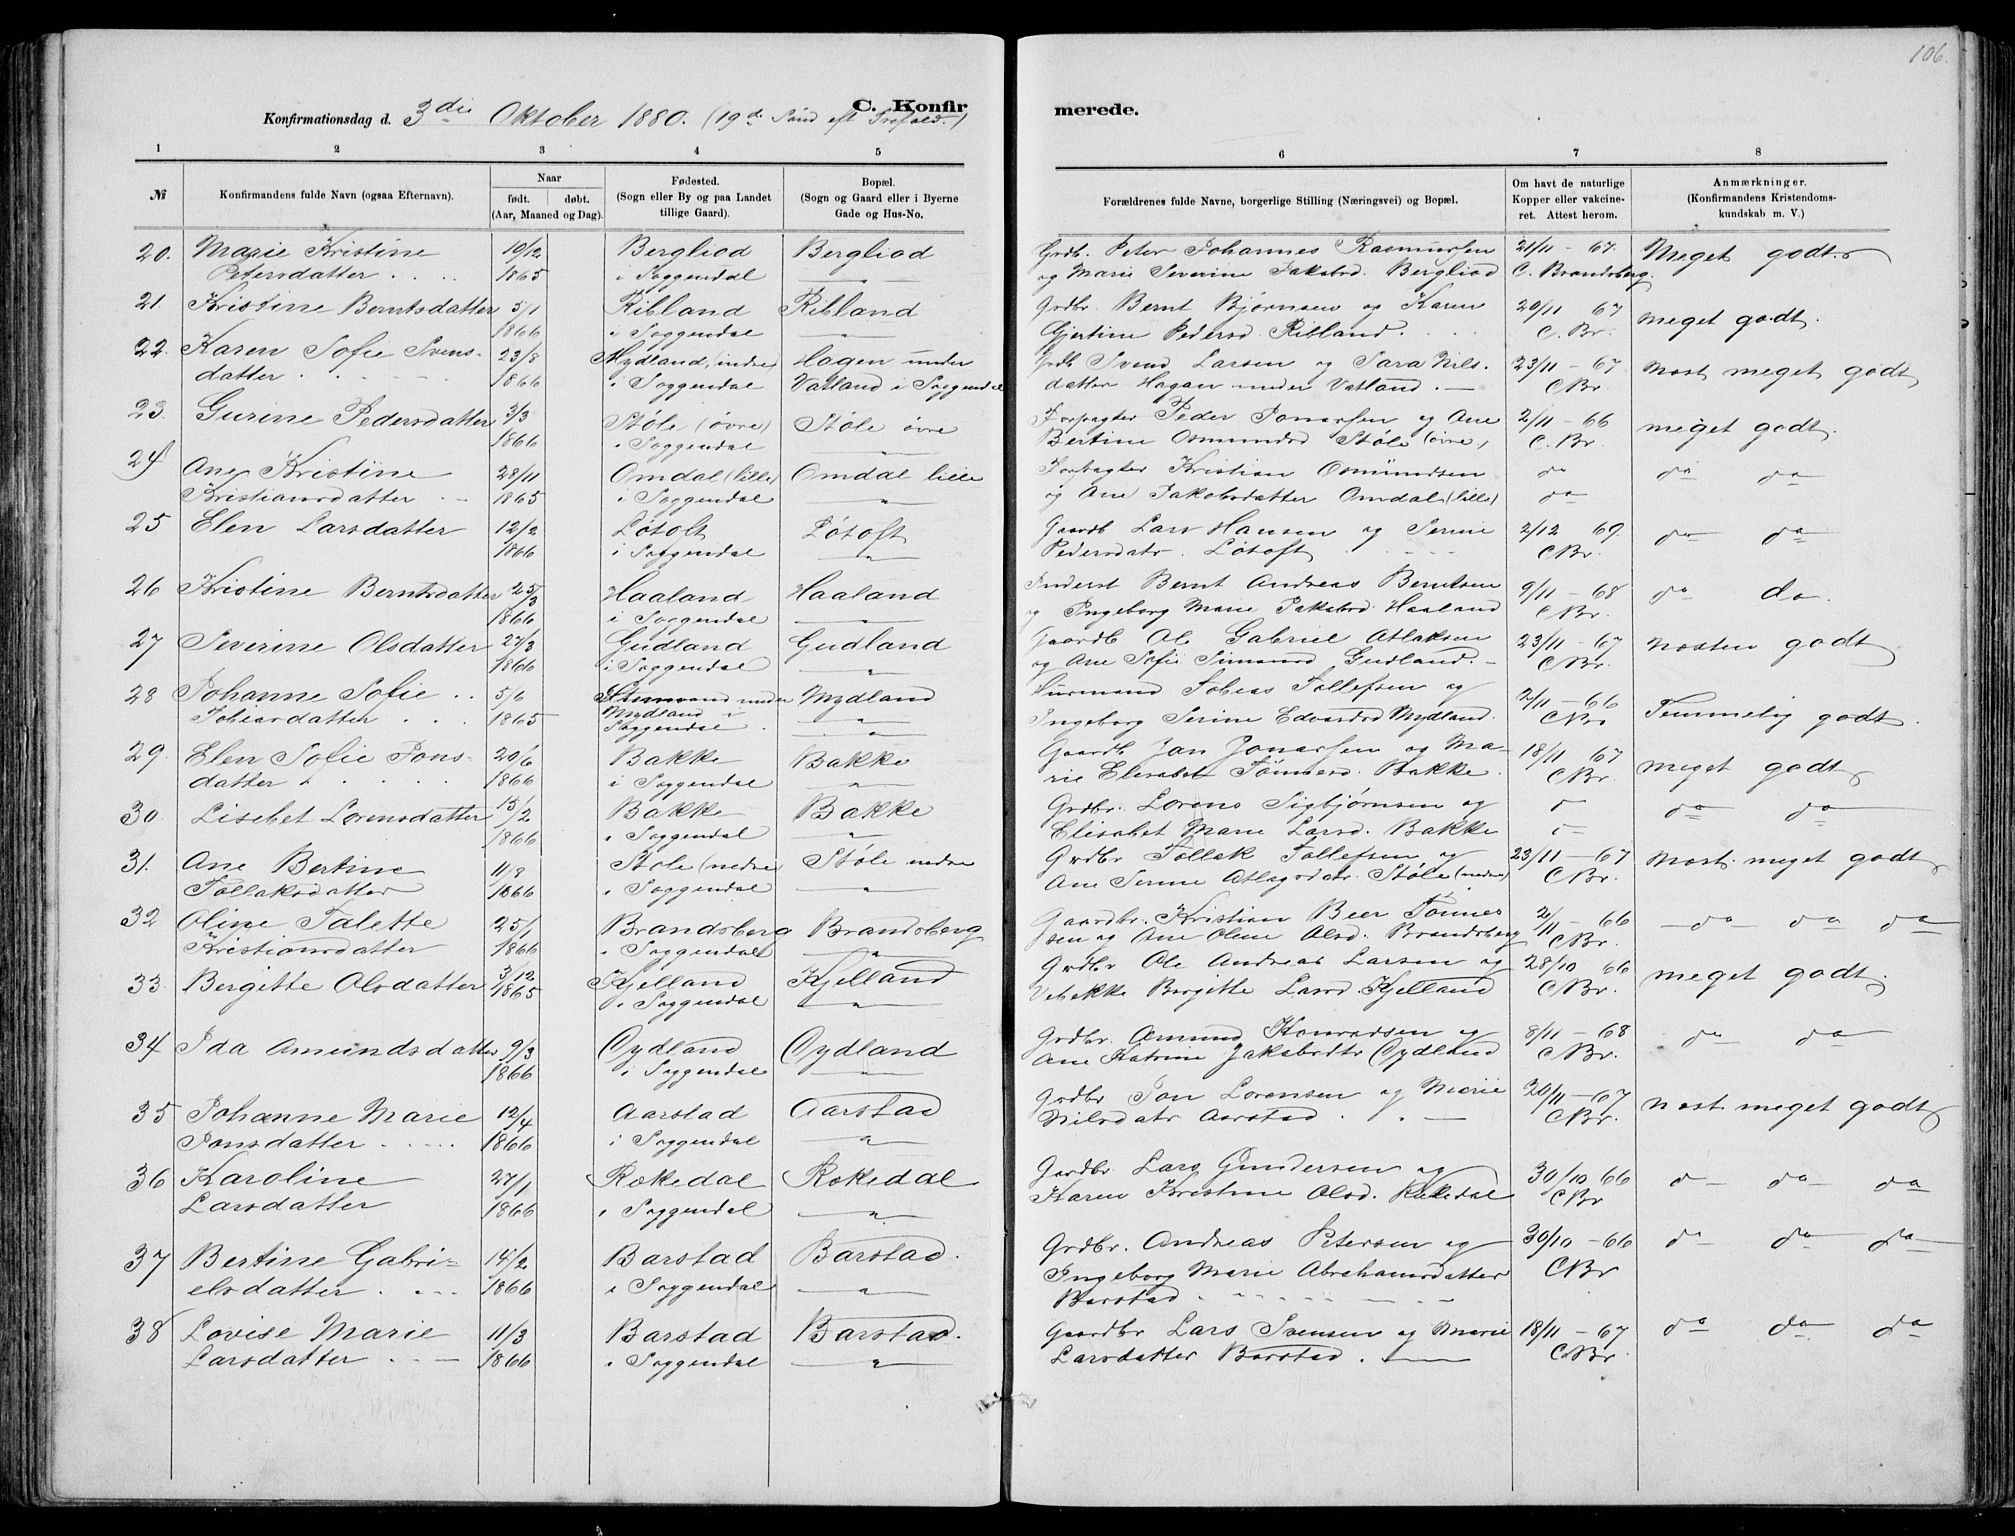 106.
C. Konfirmerede.
Konfirmationsdag d. 3die Oktober 1880. (19de Sønd eft Trefold.)
1 2 3 4 5 6 7 8
№ Konfirmandens fulde Navn (ogsaa Efternavn). Naar født. døbt. (Aar, Maaned og Dag). Fødested. (Sogn eller By og paa Landet tillige Gaard). Bopæl. (Sogn og Gaard eller i Byerne Gade og Hus-No. Forældrenes fulde Navne, borgerlige Stilling (Næringsvei) og Bopæl. Om havt de naturlige Kopper eller vakcineret. Attest herom. Anmærkninger. (Konfirmandens Kristendomskundskab m. V.)
20. Marie Kristine 10/12 Bergliod Bergliod Grdb. Peter Johannes Rasmussen 21/11 - 67. Meget godt.
Petersdatter . . . 1865 i Soggendal — " — og Marie Severine Jakobsd. Bergliod C. Brandsberg.
21. Kristine Berntsdatter 5/1 Ribland Ribland Grdbr. Bernt Bjørnsen og Karen 20/11 67 meget godt.
1866 i Soggendal — " — Gjertine Pedersd. Ribland. C. Br.
22. Karen Sofie Svens- 23/8 Mydland, indre Hagen under Grdb Svend Larsen og Sara Nils. 23/11 - 67. Næst meget godt
datter . . . 1866 i Soggendal Vatland i Soggendal datter Hagan under Vatland. — CBr.
23. Gurine Pedersdatter 3/3 Støle (øvre) Støle øvre Forpagter Peder Jonassen og Ane 2/11 - 66 meget godt.
1866 i Soggendal — " — Bertine Osmundsd Støle (øvre) C. Br.
24 Ane Kristine 28/11 Omdal (lille) Omdal lille Forpagter Kristian Osmundsen do do do
Kristiansdatter - - 1865 i Soggendal — " — og Ane Jakobsdatter Omdal (lille) do
25 Elen Larsdatter 12/2 Løtoft Løtoft Gaardb Lars Hansen og Serine 2/12 69. do do
1866 i Soggendal — " — Pedersdatr. Løtoft CBr.
26 Kristine Berntsdatter 25/3 Haaland Haaland Inderst Bernt Andreas Berntsen 9/11 - 68 do do.
1866 i Soggendal — " — og Ingeborg Marie Jakobsd. Haaland CBr.
27 Severine Olsdatter 27/3 Gudland Gudland Gaardb Ole Gabriel Atlaksen 23/11 - 67 næsten godt
1866 i Soggendal — " — og Ane Sofie Simonsd Gudland. - CBr.
28 Johanne Sofie . . 5/6 under Mydland Husmand Tobias Tollefsen og 2/11 - 66 Temmelig godt.
Tobiasdatter . . . 1865 Mydland i — " — Ingeborg Serine Edvardsd Mydland. CBr
Soggendal — " —
29. Elen Sofie Jons- 20/6 Bakke Bakke Gaardb Jan Jonassen og Ma- 18/11 67 meget godt
datter . . . 1866 i Soggendal — " — rie Elisabet Tønnesd. Bakke. CBr.
30. Lisebet Lorensdatter 13/2 Bakke Bakke Grdbr. Lorens Sigbjørnsen og do do do
1866 i Soggendal — " — Elisabet Marie Larsd. Bakke do
31. Ane Bertine 11/8 Støle (nedre Støle nedre Grdbr Tollak Tollefsen og 23/11 - 67 Næst. meget godt
Tollaksdatter 1866 i Soggendal — " — Ane Serine Atlagsdatr. Støle (nedre) CBr.
32 Oline Talette 25/1 Brandsberg Brandsberg Gaardbr. Kristian Beer Tønnes 2/11 - 66 do do do
Kristiansdatter 1866 i Soggendal — " — sen og Ane Oline Olsd. Brandsberg CBr.
33. Bergitte Olsdatter 3/12 Kjelland Kjelland Grdbr Ole Andreas Larsen og 28/10 66 meget godt.
1865 i Soggendal — " — Vebekke Bergitte Larsd. Kjelland CBr.
34 Ida Amundsdatter 9/3 Eydland Eydland Grdbr. Amund Konradsen og 8/11 - 68 do do
1866 i Soggendal — " — Ane Katrine Jakobsdtr Eydland CBr.
35 Johanne Marie 12/4 Aarstad Aarstad Grdbr Jon Lorensen og Marie 20/11 - 67 næst meget godt
Jonsdatter . . . . 1866 i Soggendal — " — Nilsdatr Aarstad . . — CBr.
36 Karoline 27/1 Rekedal Rekedal Gardbr Lars Gundersen og 30/10 66 do do do
Larsdatter 1866 i Soggendal — " — Karen Kristine Olsd. Rekedal CBr
37 Bertine Gabri- 14/2 Barstad Barstad. Grdbr. Andreas Petersen og 30/10 - 66 do do do
elsdatter . . . 1866 i Soggendal — " — Ingeborg Marie Abrahamsdatter CBr
Barstad . - - - -
38 Lovise Marie 11/3 Barstad Barstad. Gaardbr Lars Svensen og Marie 18/11 - 67 do do do
Larsdatter . . — 1866 i Soggendal " Larsdatter Barstad . — CBr.